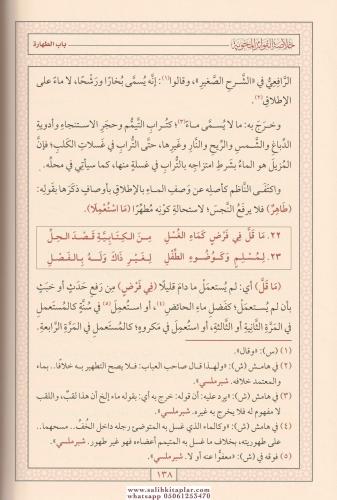 خلاصة الفوائد المحوية
باب الطهارة
الرَّافِعِيُّ في «الشَّرحِ الصَّغيرِ»، وقالوا(١): إنَّه يُسمَّى بُخارًا ورَشْحًا، لا ماءً على
الإطلاقِ(٢).
وخرَجَ به: ما لا يُسمَّى ماءً(٣)؛ كتُرابِ التيمُّمِ وحجَرِ الاستنجاءِ وأدويةِ
الدِّباغِ والشَّمسِ والرِّيحِ والنَّارِ وغيرِها، حتَّى التُّرابِ في غَسَلاتِ الكلبِ؛ فإنَّ
المُزيلَ هو الماءُ بشَرطِ امتزاجِه بالتُّرابِ في غسلةٍ منها، كما سيأتي في محلِّه.
واكتفَى النَّاظمُ كأصلِه عن وَصفِ الماءِ بالإطلاقِ بأوصافٍ ذكَرَها بقَولِه:
(طَاهِرٌ) فلا يرفَعُ النَّجسُ؛ لاستحالةِ كونِه مُطهِّرًا (مَا اسْتُعْمِلَا).
٢٢. مَا قَلَّ فِي فَرْضٍ كَمَاءِ الغُسْلِ مِنَ الكِتَابِيَّةِ قَصْدَ الحِلِّ
٢٣. لِمُسْلِمٍ وَكَوُضُوءِ الطِّفْلِ لِغَيْرِ ذَاكَ وَلَهُ بِالفَصْلِ
(مَا قَلَّ) أي: لم يُستعمَلْ ما دامَ قليلًا (فِي فَرْضٍ) مِن رفعِ حدَثٍ أو خبَثٍ
بأن لم يُستعمَلْ؛ كفَضلِ ماءِ الحائضِ(٤)، أو استُعمِلَ(٥) في سُنَّةٍ كالمُستعمَلِ
في المَرَّةِ الثَّانيةِ أو الثَّالثةِ، أو استُعمِلَ في مكروهٍ؛ كالمُستعمَلِ في المَرَّةِ الرَّابعةِ.
(١) (س): «وقال».
(٢) في هامش (ش): «ولهذا قال صاحب العباب: فلا يصح التطهير به خلافًا.. بماء
والمعتمد خلافه. شبرملسي».
(٣) في هامش (ش): «يرد عليه: أن قوله: خرج به أي: بقوله ماء إلخ أن هذا لقب، واللقب
لا مفهوم له فلا يخرج به غيره. شبرملسي».
(٤) في هامش (ش): «وكالماء الذي غسل به المتوضئ رجله داخل الخُفِّ.. مسحهما..
على طهوريته، بخلاف ما غسل به المتيمم أعضاءه فهو غير طهور. شبرملسي».
(٥) فوقه في (ش): «معفوًّا عنه أو لا. شبرملسي».
١٣٨
www.salihkitaplar.com
whatsapp 05061253470